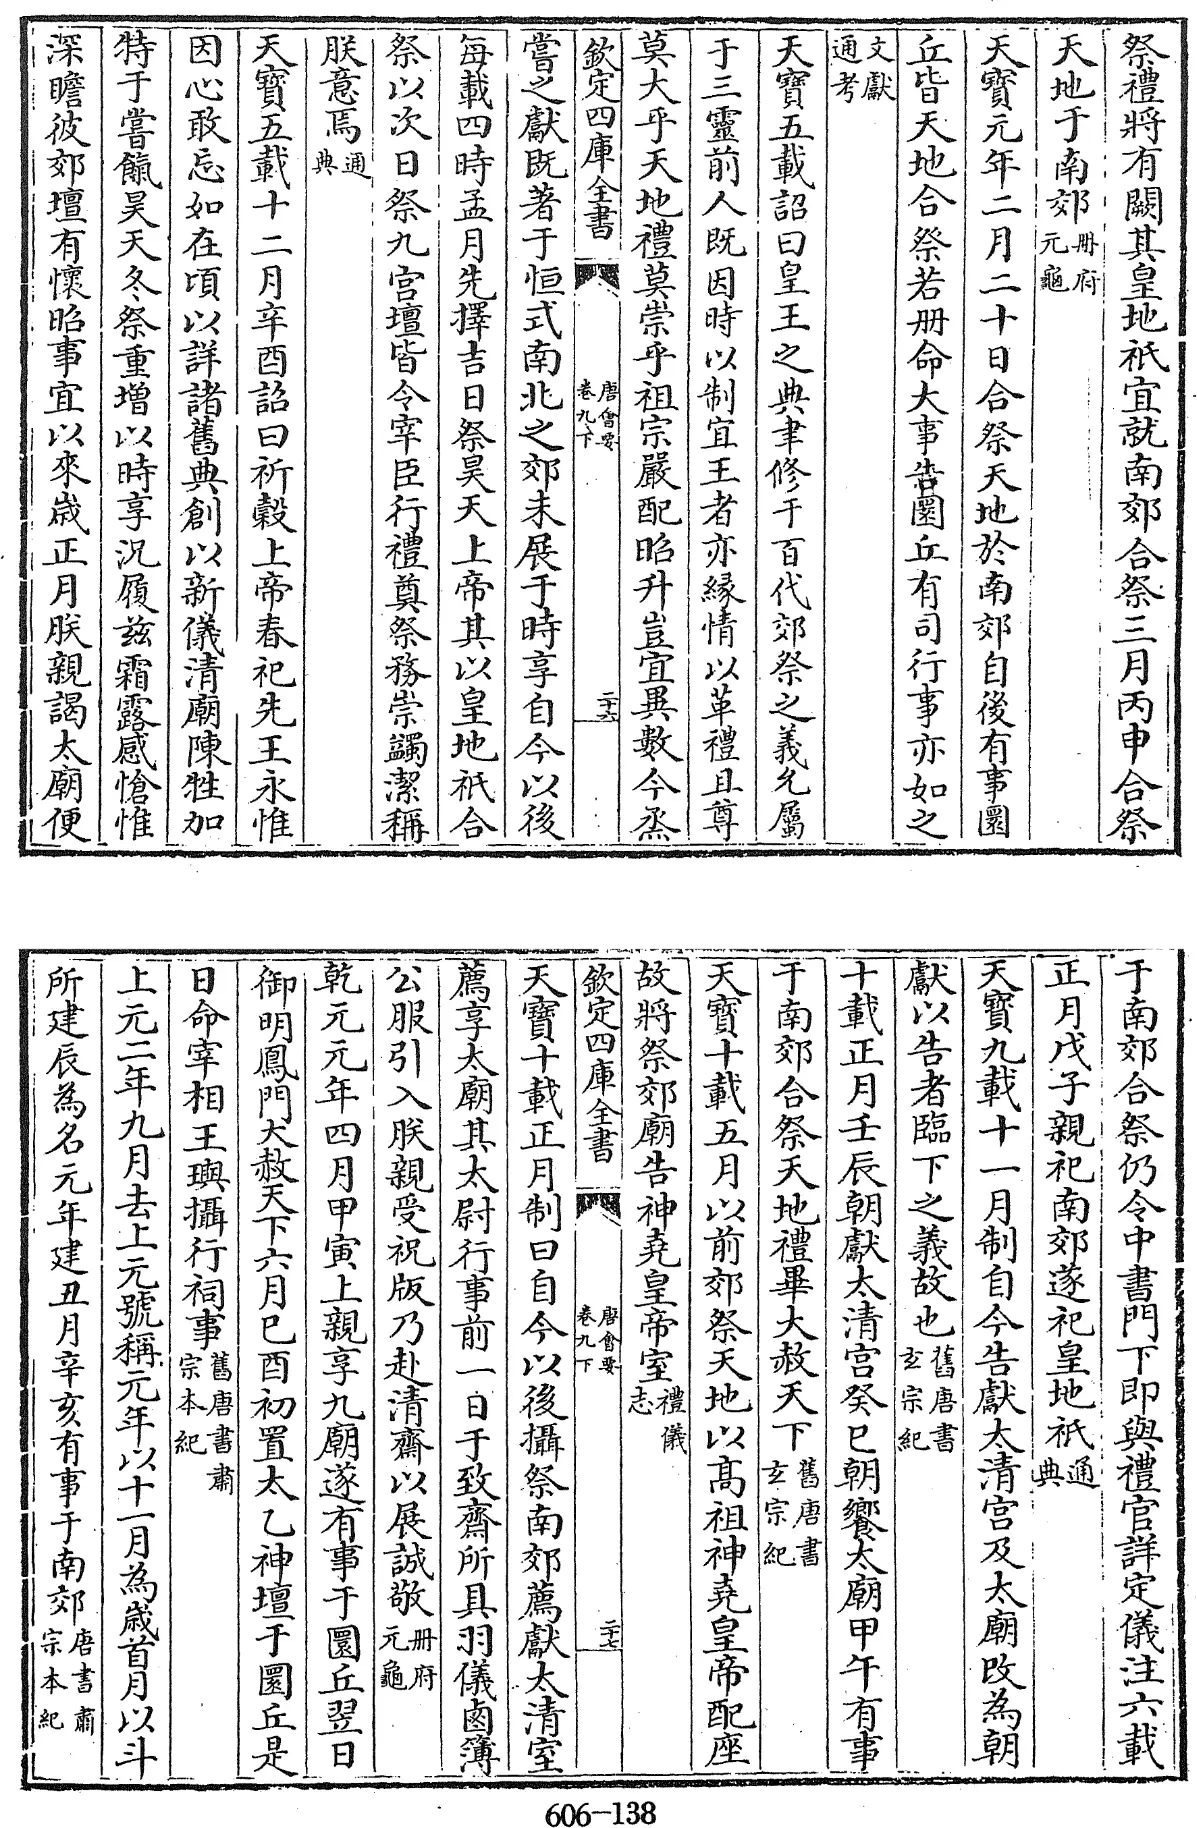 祭禮將有闕其皇地祇宜就南郊合祭三月丙申合祭
天地于南郊冊府元龜
天寶元年二月二十日合祭天地於南郊自後有事圜
丘皆天地合祭若冊命大事告圜丘有司行事亦如之
文獻通考
天寶五載詔曰皇王之典聿修于百代郊祭之義允屬
于三靈前人既因時以制宜王者亦緣情以革禮且尊
莫大乎天地禮莫崇乎祖宗嚴配昭升豈宜異數今烝
欽定四庫全書 唐會要卷九下 二十六
嘗之獻既著于恒式南北之郊未展于時享自今以後
每載四時孟月先擇吉日祭昊天上帝其以皇地祇合
祭以次日祭九宮壇皆令宰臣行禮奠祭務崇蠲潔稱
朕意焉通典
天寶五載十二月辛酉詔曰祈穀上帝春祀先王永惟
因心敢忘如在頃以詳諸舊典創以新儀清廟陳牲加
特于嘗餼昊天冬祭重增以時享況履茲霜露感愴惟
深瞻彼郊壇有懷昭事宜以來歲正月朕親謁太廟便
于南郊合祭仍令中書門下即與禮官詳定儀注六載
正月戊子親祀南郊遂祀皇地祇通典
天寶九載十一月制自今告獻太清宮及太廟改為朝
獻以告者臨下之義故也舊唐書玄宗紀
十載正月壬辰朝獻太清宮癸巳朝饗太廟甲午有事
于南郊合祭天地禮畢大赦天下舊唐書玄宗紀
天寶十載五月以前郊祭天地以高祖神堯皇帝配座
故將祭郊廟告神堯皇帝室禮儀志
欽定四庫全書 唐會要卷九下 二十七
天寶十載正月制曰自今以後攝祭南郊薦獻太清室
薦享太廟其太尉行事前一日于致齋所具羽儀鹵簿
公服引入朕親受祝版乃赴清齋以展誠敬冊府元龜
乾元元年四月甲寅上親享九廟遂有事于圜丘翌日
御明鳳門大赦天下六月巳酉初置太乙神壇于圜丘是
日命宰相王璵攝行祠事舊唐書肅宗本紀
上元二年九月去上元號稱元年以十一月為歲首月以斗
所建辰為名元年建丑月辛亥有事于南郊唐書肅宗本紀
606-138